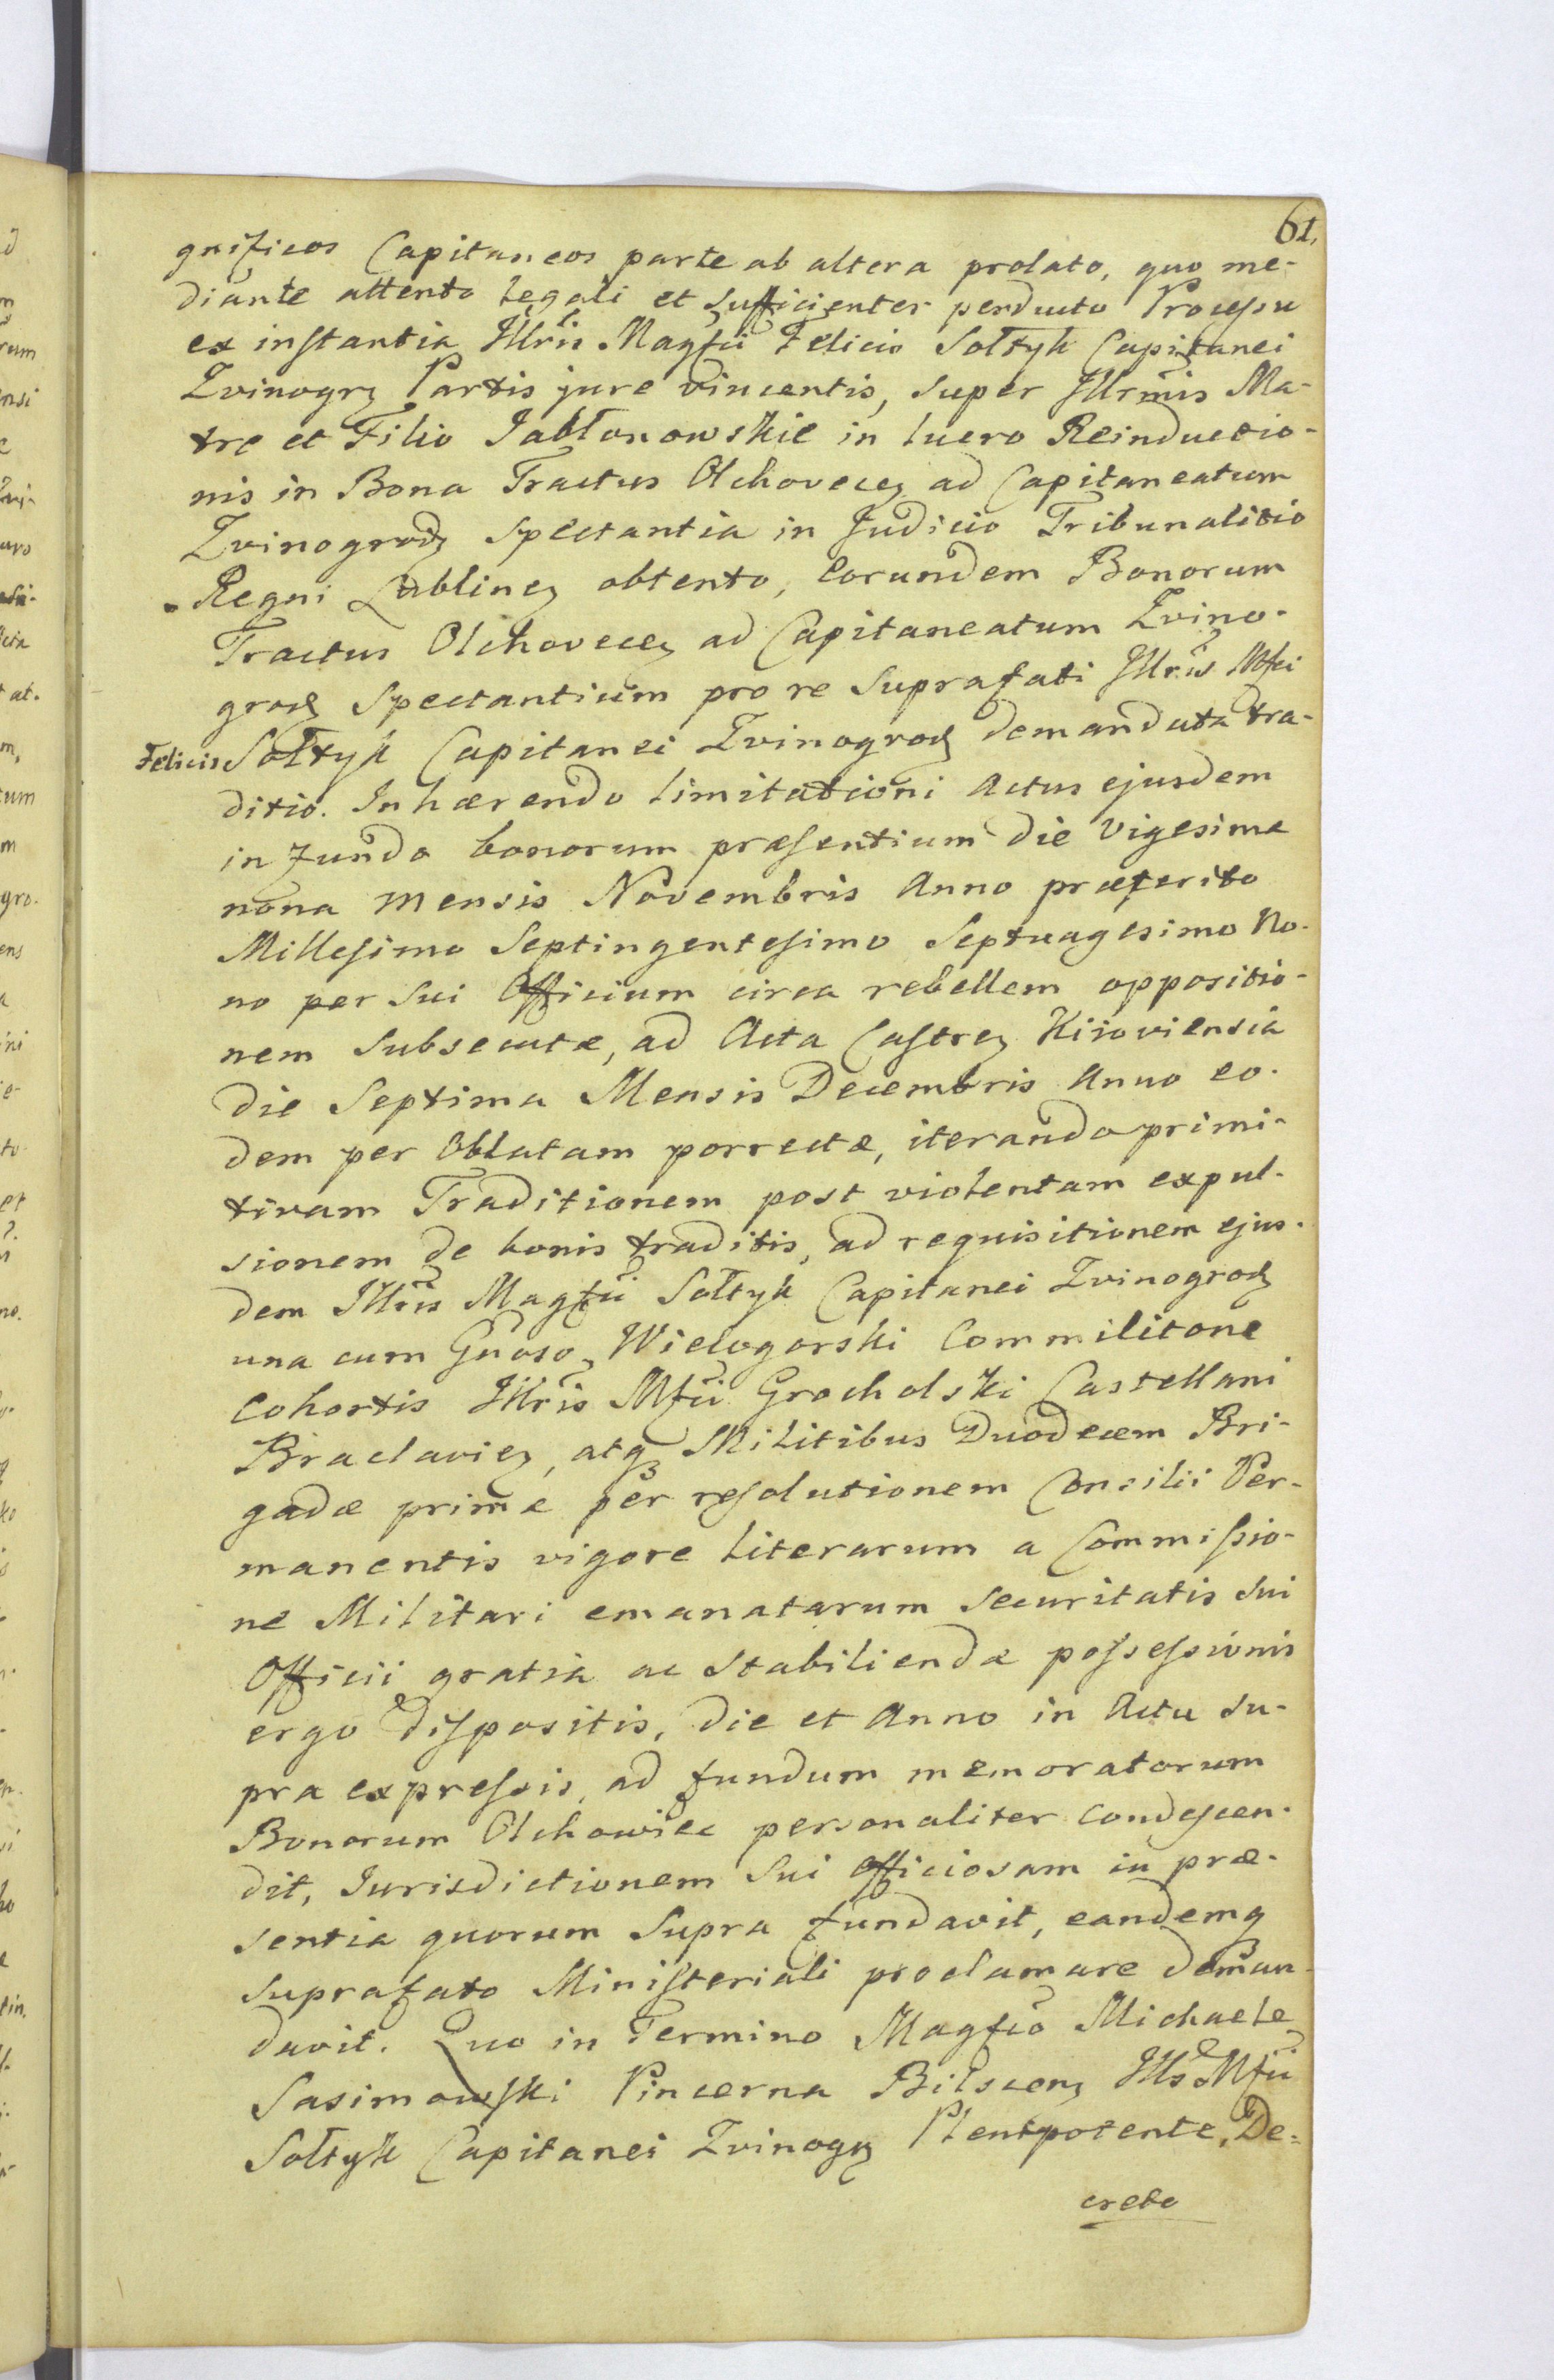 61.
gnificos Capitaneos parte ab altera prolato, quo me-
diante attento legali et sufficienter perducto Processu
ex instantia Illris Magfci Felicis Sołtyk Capitanei
Zvinogrz Partis jure vincentis, super Illrmis Ma-
tre et Filio Jabłonowskie in lucro Reinductio-
nis in Bona Tractus Olchovecz ad Capitaneatum
Zvinogrodz Spectantia in Judicio Tribunalitio
Regni Lublinez obtento, Eorundem Bonorum
Tractus Olchovecz ad Capitaneatum Zvino-
grodz Spectantium pro re Suprafati Illris Mfci
Felicis Sołtyk Capitanei Zvinogrodz demandata tra-
ditio. Inhærendo limitationi Actus ejusdem
in fundo bonorum præsentium die Vigesima
nona Mensis Novembris Anno præterito
Millesimo Septingentesimo Septuagesimo No-
no per sui Officium circa rebellem oppositio-
nem Subsecutæ, ad Acta Castrez Kijoviensia
die Septima Mensis Decembris Anno eo-
dem per Oblatam porrectæ, iterando primi-
tivam Traditionem post violentam expul-
sionem de bonis traditis, ad requisitionem ejus-
dem Illris Magfci Sołtyk Capitanei Zvinogrodz
una cum Gnoso Wielogorski Commilitone
Cohortis Illris Mfci Grocholski Castellani
Braclaviez, atqz Militibus Duodecem Bri-
gadæ primæ per resolutionem Consilii Per-
manentis vigore Literarum a Commissio-
ne Militari emanatarum Securitatis sui
Officii gratia ac Stabiliendæ possessionis
ergo dispositis, die et Anno in Actu su-
pra expressis, ad fundum memoratorum
Bonorum Olchowiec personaliter condescen-
dit, Jurisdictionem sui Officiosam in præ-
sentia quorum Supra fundavit, eandemq
suprafato Ministeriali proclamare deman-
davit. Quo in Termino Magfco Michaele
Sasimowski Pincerna Bilscenz Ills Mfci
Sołtyk Capitanei Zvinogz Plenipotente, De-
creto